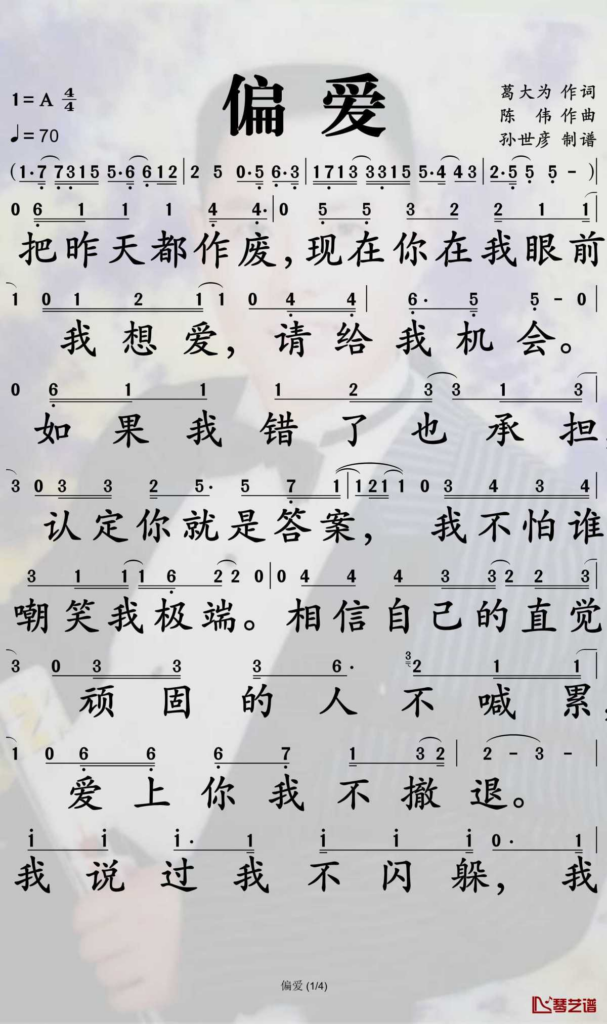 偏爱
1=A 4/4
♩=70
葛大为 作词
陈 伟 作曲
孙世彦 制谱
(1·7 7315 5·6 612 | 2 5 0·5 6·3 | 1713 3315 5·4 43 | 2·5 5 5 - )|
0 6 1 1 1 4 4· | 0 5 5 3 2 2 1 1 |
把昨天都作废,现在你在我眼前
1 0 1 2 1 1 0 4 4 | 6· 5 5 - 0 |
我想爱,请给我机会。
0 6 1 1 1 2 3 3 1 3 |
如果我错了也承担,
3 0 3 3 2 5· 5 7 1 | 1 2 1 1 0 3 4 3 4 |
认定你就是答案, 我不怕谁
3 1 1 1 6 2 2 0 | 0 4 4 4 3 3 2 3 3 |
嘲笑我极端。相信自己的直觉
3 0 3 3 3 6· 3 2 1 1 |
顽固的人不喊累,
1 0 6 6 6 7 1 3 2 | 2 - 3 - |
爱上你我不撤退。
i i i· 1 i i i | 0· 1
我说过我不闪躲,我
偏爱 (1/4)
琴艺谱